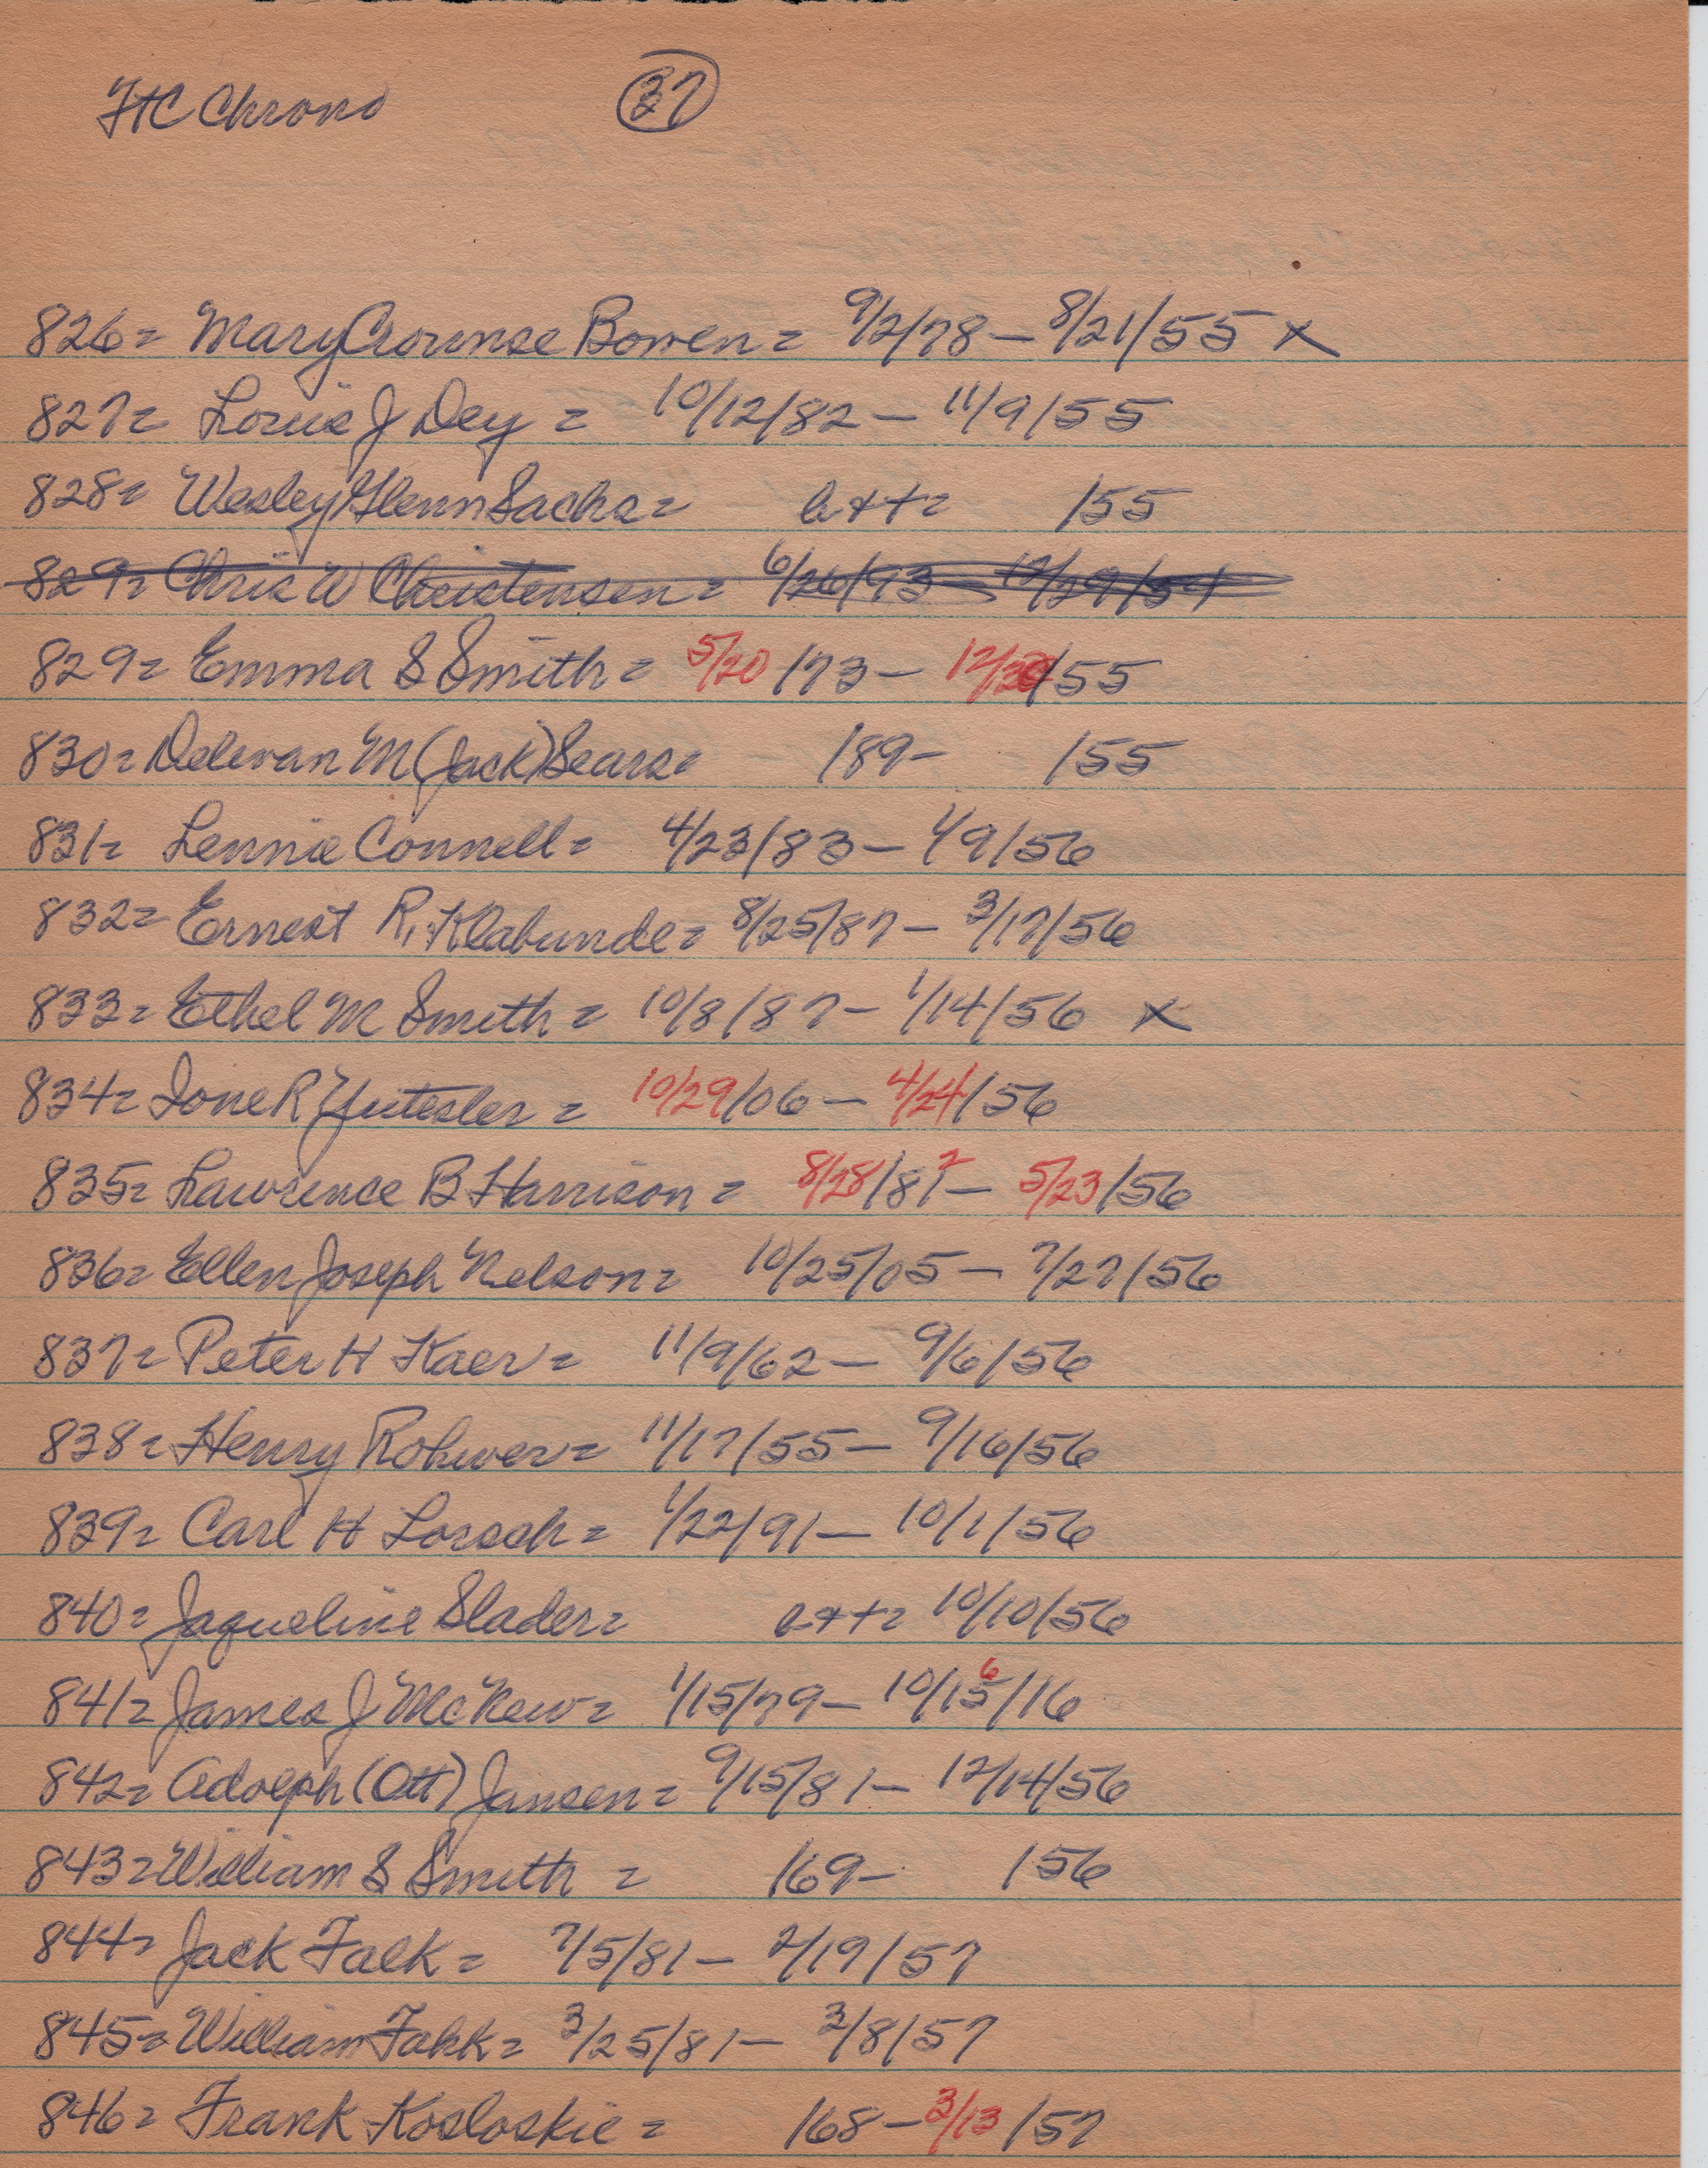 FHC Chrono 37
826= Mary Crounse Bowen = 9/2/78 — 8/21/55 x
827= Louie J Dey = 10/12/82 — 11/9/55
828= Wesley Glenn Sachs = b++= /55
829= Chris W Christensen = 6/26/93 — 12/29/54
829= Emma S Smith = 5/20/73 — 12/30/55
830= Delevan M (Jack) Sears= /89- /55
831= Lennie Connell = 4/23/83 — 1/9/56
832= Ernest R, Klabunde = 8/25/87 — 3/17/56
833= Ethel M Smith = 10/8/87 — 1/14/56 x
834= Ione R Yutesler = 10/29/06 — 4/24/56
835= Lawrence B Harrison = 8/28/81 2 — 5/23/56
836= Ellen Joseph Nelson = 10/25/05 — 7/27/56
837= Peter H Kaer = 11/9/62 — 9/6/56
838= Henry Rohwer = 11/17/55 — 9/16/56
839= Carl H Lorsch = 1/22/91 — 10/1/56
840= Jaqueline Slader= b++= 10/10/56
841= James J McNew = 1/15/79 — 10/15 6/16
842= Adolph (Ott) Jansen = 9/15/81 — 12/14/56
843= William S Smith = /69- /56
844= Jack Falk = 7/5/81 — 2/19/57
845= William Fahk = 3/25/81 — 3/8/57
846= Frank Kosloskie = /68 — 3/13/57